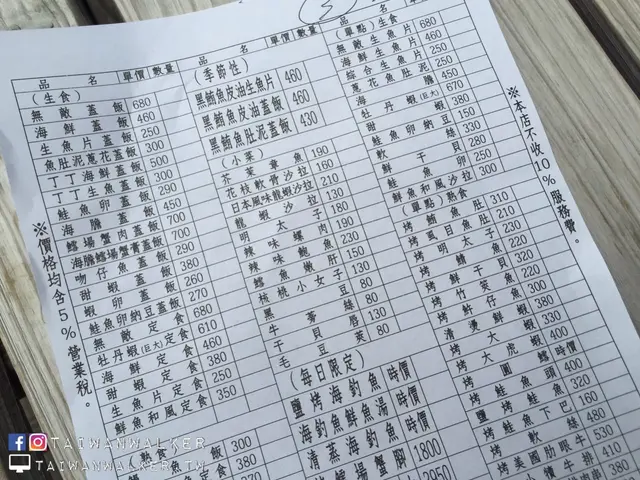 品名 單價 數量
(生食)
無敵蓋飯 680
海鮮蓋飯 460
生魚片蓋飯 250
魚肚泥蔥花蓋飯 300
丁丁海鮮蓋飯 500
丁丁生魚蓋飯 300
鮭魚卵蓋飯 290
海膽蓋飯 450
鱈場蟹肉蓋飯 700
海膽鱈場蟹膏蓋飯 700
吻仔魚蓋飯 290
甜蝦蓋飯 380
蝦卵蓋飯 260
鮭魚卵納豆蓋飯 270
無敵定食 680
牡丹蝦(巨大)定食 610
海鮮定食 460
甜蝦定食 380
生魚片定食 250
鮮魚和風定食 350
熟食 300
定食 380
品名 單價 數量
(季節性)
黑鮪魚皮油生魚片 460
黑鮪魚皮油蓋飯 460
黑鮪魚肚泥蓋飯 430
(小菜)
芥茉章魚 190
花枝軟骨沙拉 160
日本風味龍蝦沙拉 210
龍蝦沙拉 130
明太子 180
辣味螺肉 190
辣味鮑魚 230
鱈魚嫩肝 150
核桃小女子 130
黑豆 80
牛蒡絲 80
干貝唇 130
毛豆莢 80
(每日限定)
鹽烤海釣魚 時價
海釣魚鮮魚湯 時價
清蒸海釣魚 時價
鱈場蟹腳 1800
2950
品名 單價 數量
(單點)生食
無敵生魚片 680
海鮮生魚片 450
綜合生魚片 250
蔥花魚肚泥 250
海膽 450
牡丹蝦(巨大) 670
甜蝦 380
鮭魚卵納豆 150
軟絲 330
鮮干貝 280
鮭魚卵 250
鮮魚和風沙拉 300
(單點)熟食
烤鮪魚肚 310
烤虱目魚肚 210
烤明太子 230
烤鯖魚 220
烤鮮干貝 220
烤竹筴魚 320
烤魽仔魚 380
清燙鮮蝦 330
烤大蝦 400
烤大虎蝦 400
烤圓鱈 時價
烤鮭魚頭 400
鹽烤鮭魚 320
烤鮭魚下巴 160
烤軟絲 480
烤美國肋眼牛 530
小犢牛排 410
380
※價格均含5%營業稅。
※本店不收10%服務費。
TAIWANWALKER
TAIWANWALKER.TW